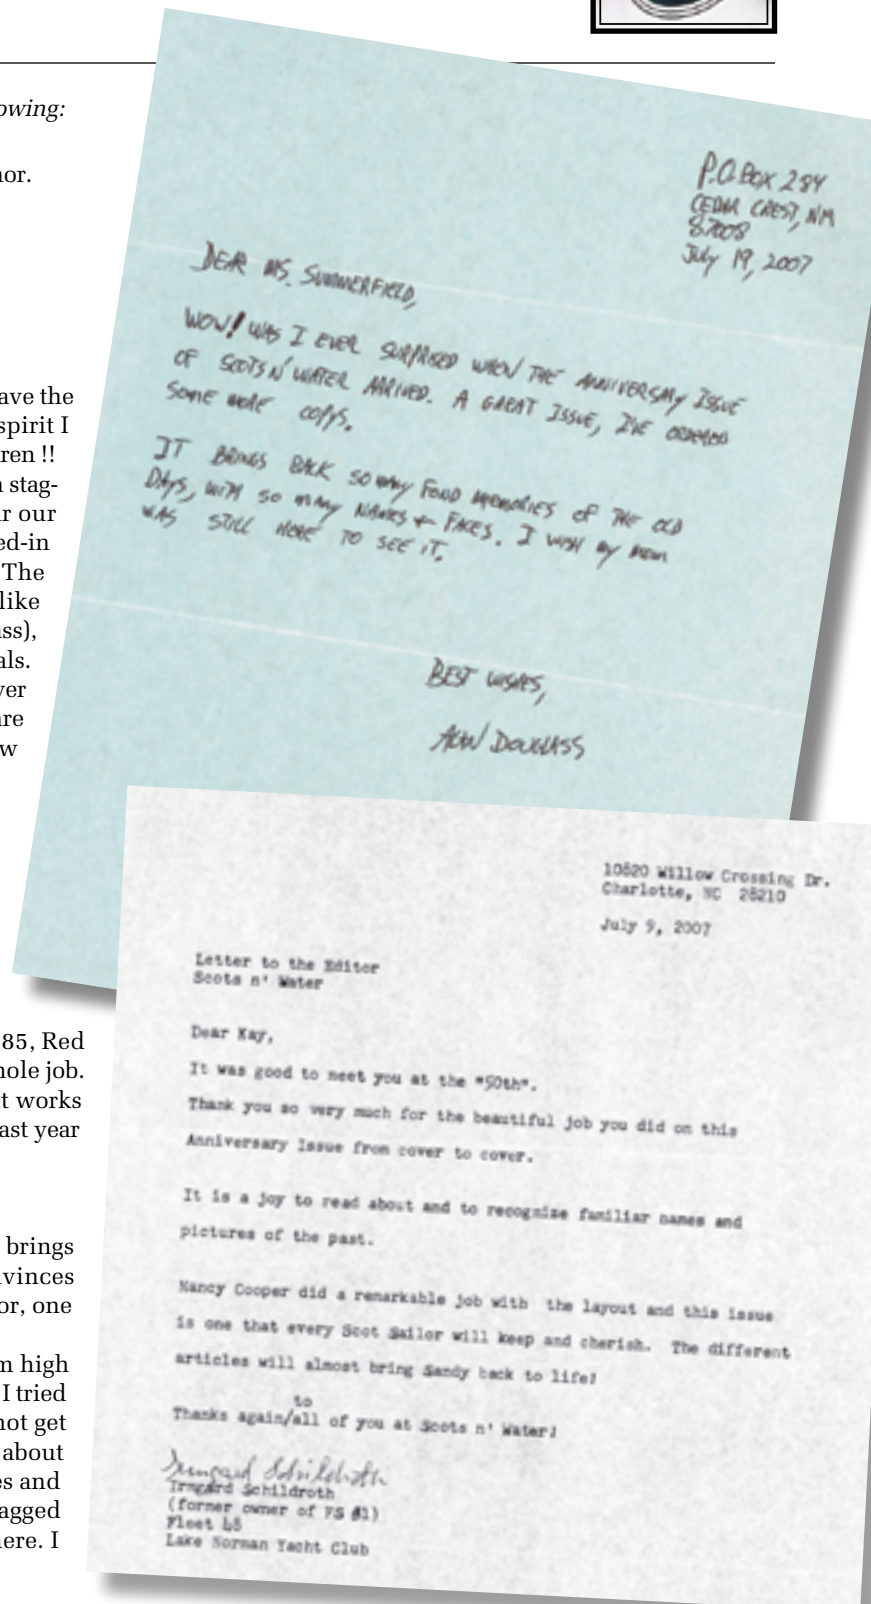 owing:
nor.
ave the
spirit I
ren !!
n stag-
r our
ed-in
The
like
ss),
als.
ver
are
w
85, Red
hole job.
t works
ast year
brings
vinces
or, one
m high
I tried
not get
about
es and
agged
here. I
P.O. BOX 284
CEDAR CREST, NM
87008
July 19, 2007
DEAR MS. SUMMERFIELD,
WOW! WAS I EVER SURPRISED WHEN THE ANNIVERSARY ISSUE
OF SCOTS N' WATER ARRIVED. A GREAT ISSUE, I'VE ORDERED
SOME MORE COPYS.
IT BRINGS BACK SO MANY FOND MEMORIES OF THE OLD
DAYS, WITH SO MANY NAMES + FACES. I WISH MY MOM
WAS STILL HERE TO SEE IT.
BEST WISHES,
ALAN DOUGLASS
10620 Willow Crossing Dr.
Charlotte, NC 28210
July 9, 2007
Letter to the Editor
Scots n' Water
Dear Kay,
It was good to meet you at the "50th".
Thank you so very much for the beautiful job you did on this
Anniversary Issue from cover to cover.
It is a joy to read about and to recognize familiar names and
pictures of the past.
Nancy Cooper did a remarkable job with the layout and this issue
is one that every Scot Sailor will keep and cherish. The different
articles will almost bring Sandy back to life!
to
Thanks again/all of you at Scots n' Water!
Irmgard Schildroth
Irmgard Schildroth
(former owner of FS #1)
Fleet 48
Lake Norman Yacht Club